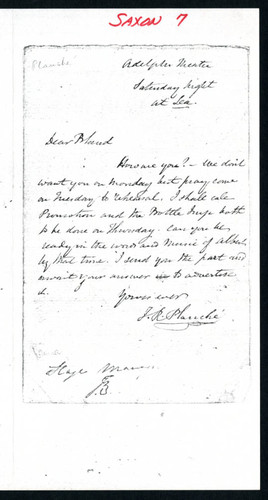 SAXON 7
Planché
Adelphi Theatre
Saturday Night
at Sea.
Dear Bland
How are you? - We don't
want you on Monday but pray come
on Tuesday to rehearsal. I shall call
Promotion and the Bottle Imp both
to be done on Thursday. Can you be
ready in the words and Music of
by that time. I send you the part and
await your answer to advertise
it.
Yours ever
J. R. Planché
Stage